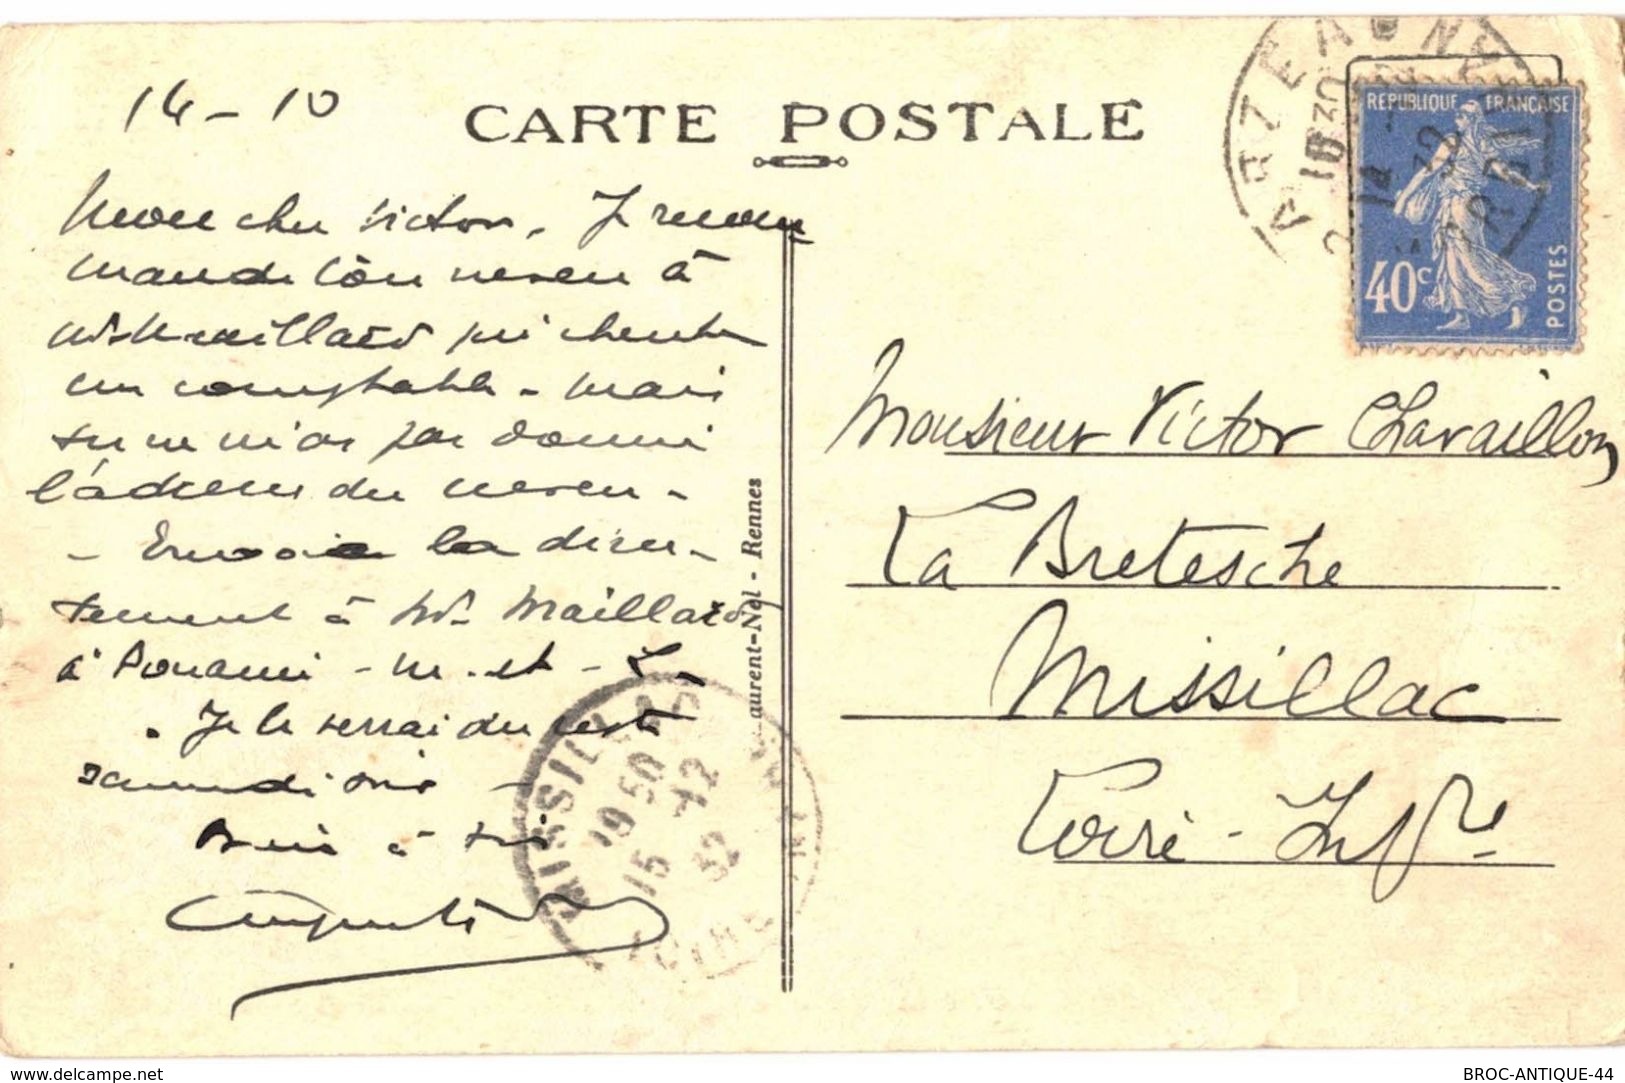 14 - 10
CARTE POSTALE
Mon cher Victor. Je recom
mande ton neveu à
Mr Maillard qui cherche
un comptable - mais
tu ne m'as pas donné
l'adresse du neveu -
- Envoie la direc -
tement à Mr Maillard
à - m. et - L -
. Je le verrai du reste
samedi
à toi
Laurent-Nel - Rennes
MISSILLAC
19 50
15 -12
32
LOIRE
ARZE
16 30
14
32
REPUBLIQUE FRANÇAISE
40c
POSTES
Monsieur Victor Chavaillon
La Bretesche
Missillac
Loire - Infre
delcampe.net
BROC-ANTIQUE-44